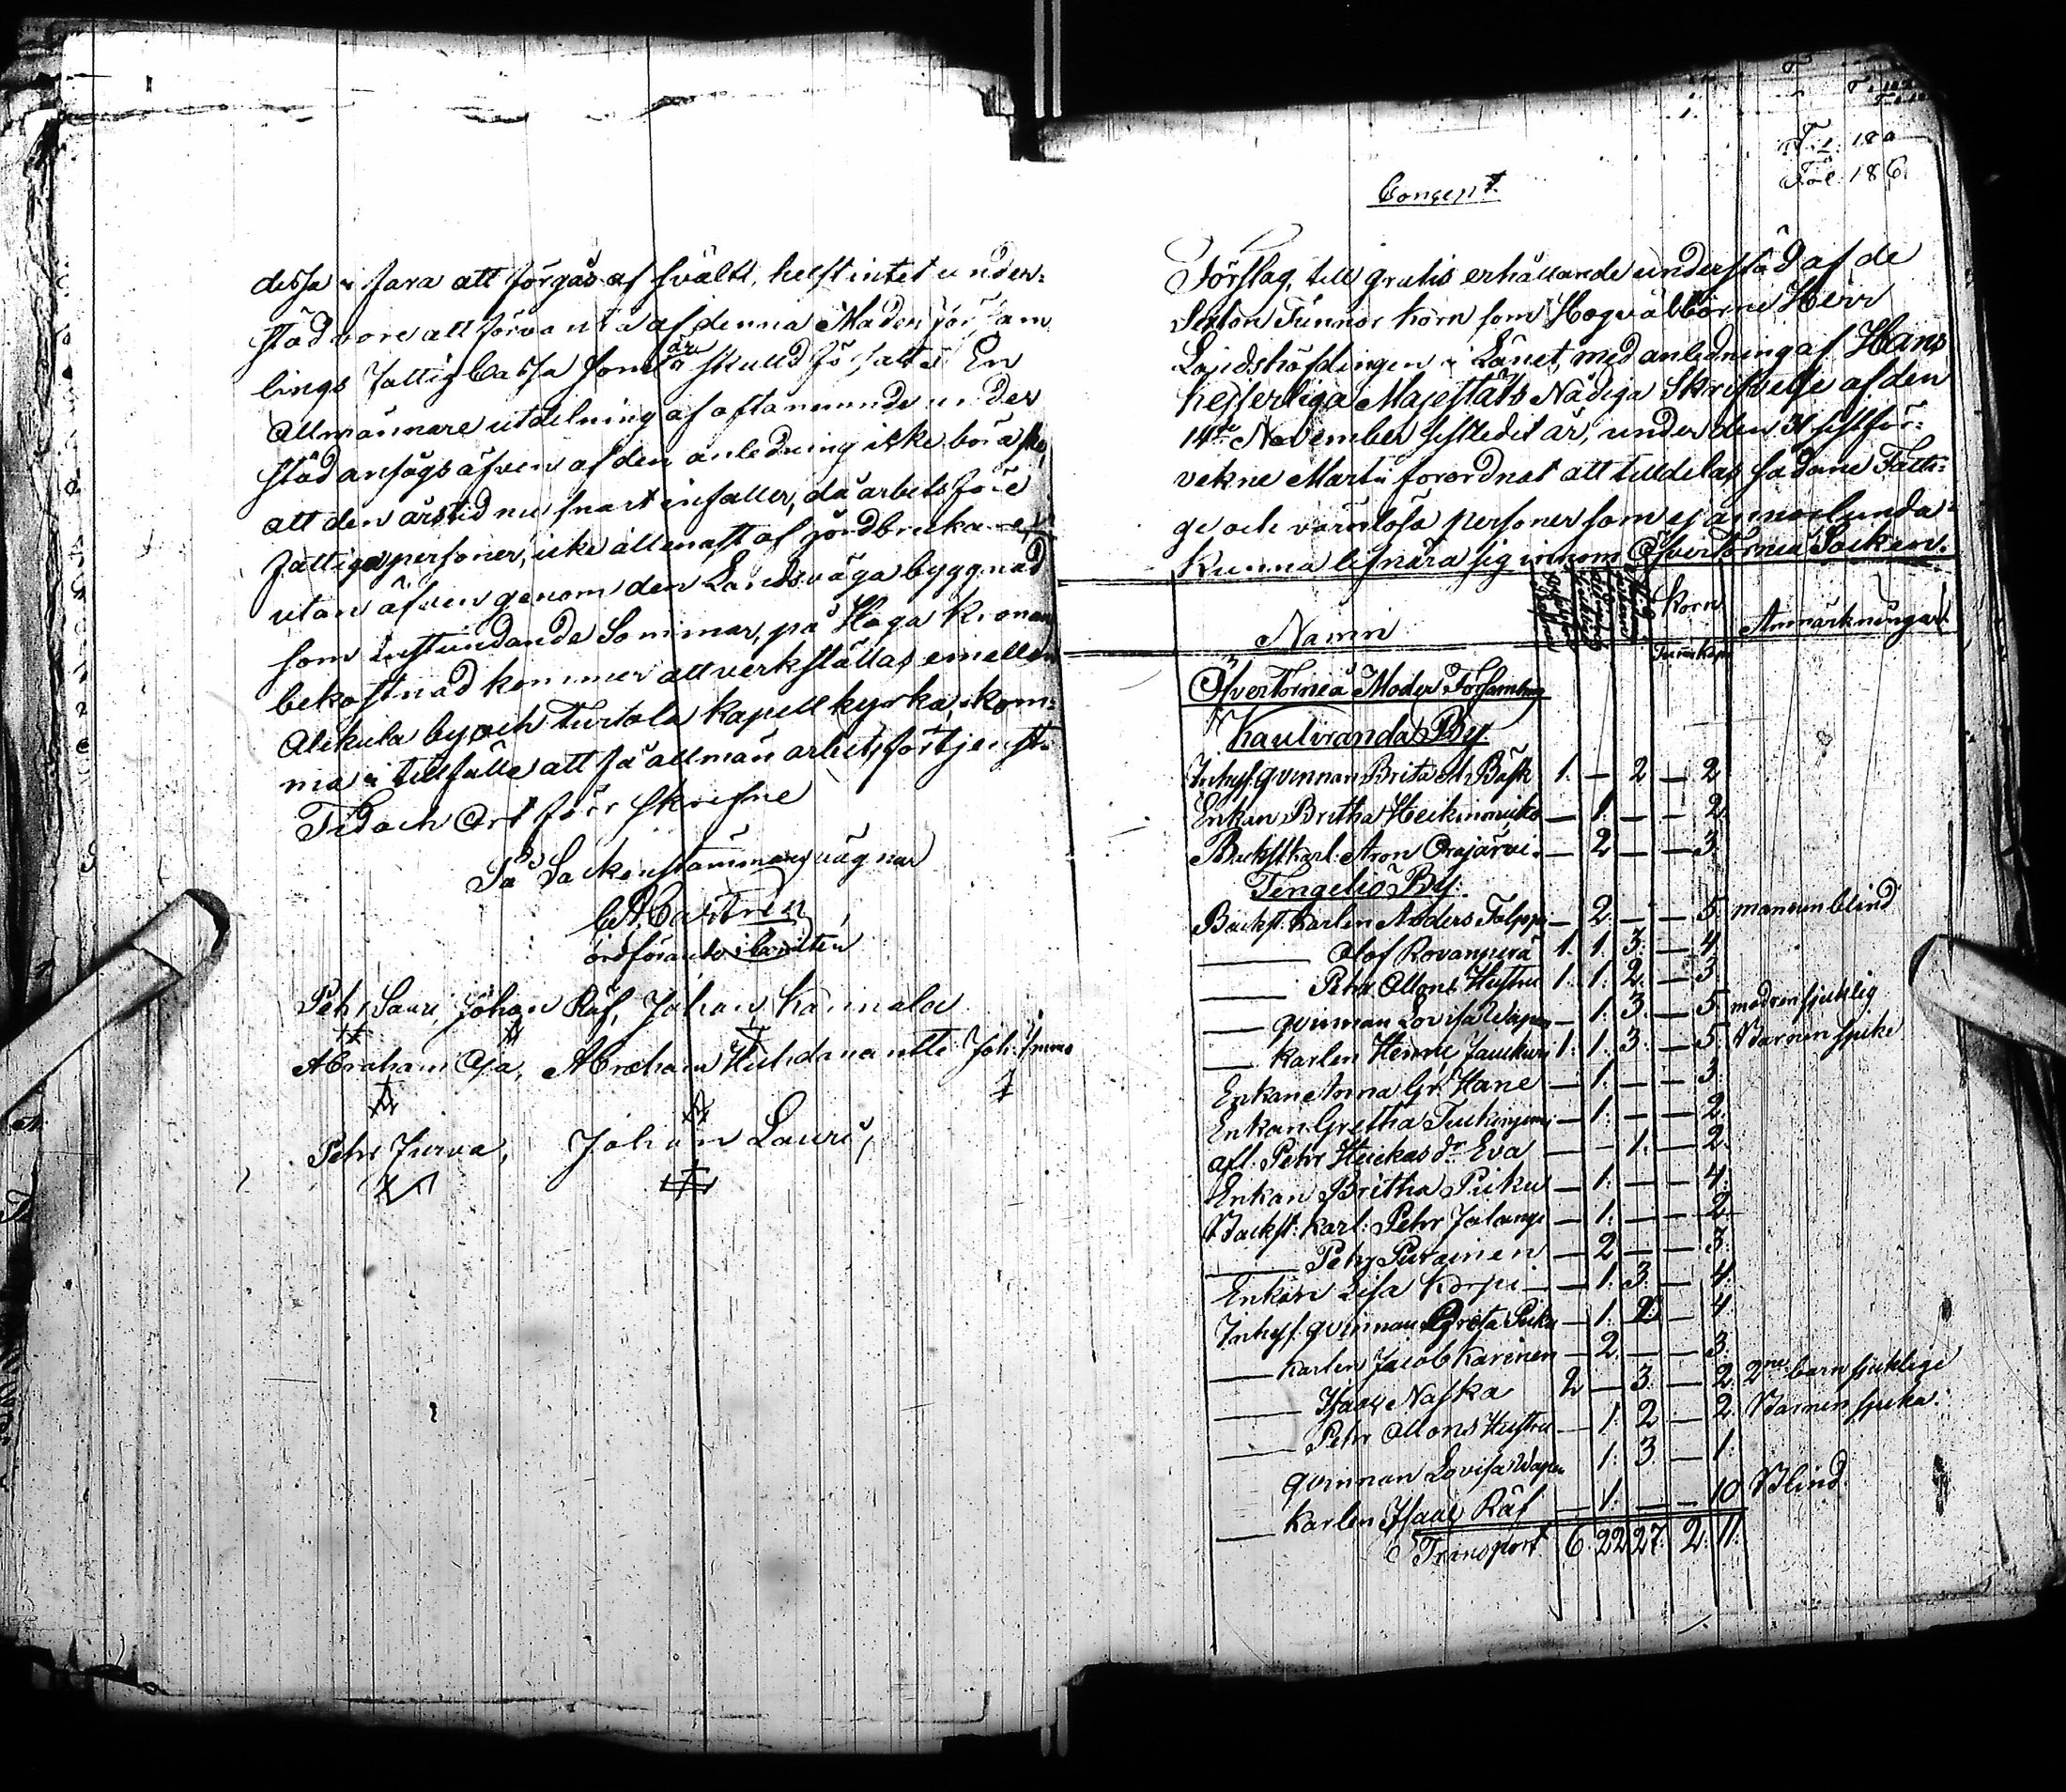 dessa i fara att förgås af svält, helst intet under-
stöd vore att förvänta af denna Moderförsam
lings fattig Cassa som är i skuld försatt. En
Allmännare utdelning af oftanämnde under
stöd ansågs äfven af den anledning icke böra ske,
att den årstid nu snart infaller, då arbetsföre
fattiga personer, icke allenast af jordbrukare
utan äfven genom den Landsväga byggnad
som instundande Sommar, på Höga Kronans
bekostnad kommer att verkställas emellan
Alkula by och Turtola kapell kyrka, kom-
ma i tillfälle att få allmän arbetsförtjenst.
Tid och Ort förr skrifne
På Sockenstämmans vägnar
Castrén
ordförande i Comitén
Pehr Lauri, Johan Räf, Johan Kannala
Abraham Oja, Abraham Huhdanantti Joh:
Pehr Jurva, Johan Lauri,
Concept.
Fol. 186
Förslag, till gratis erhållande understöd af de
Sexton Tunnor korn som Högvälborne Herr
Landshöfdingen i Länet, med anledning af Hans
Kejserliga Majestäts Nådiga Skrifvelse af den
14de November sistledit år, under den 31 sistför-
vekne Martii förordnat att tilldelas sådane Fatti-
ge och värnlösa personer som ej annorlunda
kunna lifnära sig innom Öfvertorneå Socken.
Namn Korn Anmärkningar
Tunn Kapp
Öfvertorneå Moder Församling
Kauliranda By.
Inhys. qvinnan Brita M. Bask 1. — 2 — 2
Enkan Britha Heikinmikko — 1. — — 2.
Backst. karl. Aron Orajärvi — 2 — — 3
Tengeliö By:
Backst. karlen Anders Falppi — 2. — — 5 mannen blind
— Olof Rovanperä 1. 1. 3. — 4
— Pehr Ollons Hustru 1. 1. 2. — 3
— qvinnan Lovisa Wapen — 1. 3. — 5 modren sjuklig
— karlen Henric 1. 1. 3. — 5. Barnen sjuke
Enkan Anna Gr. Hane — 1. — — 3.
Enkan Gretha — 1. — — 2.
afl. Pehr Heickas dr Eva — — 1. — 2.
Enkan Britha Puku — 1. — — 4.
Backst: karl: Pehr Jalange — 1. — — 2.
— Pehr Purainen — 2 — — 3.
Enkan Lisa Korpi — 1. 3. — 4.
Inhys. qvinnan Greta Puku — 1. 2. — 4
— karlen Jacob Karinen — 2. — — 3.
— Isaac Naska 2 — 3. — 2. 2ne barn sjuklige
— Pehr Ollons Hustru — 1. 2 — 2 Barnen sjuka.
qvinnan Lovisa Wapen 1. 3. — 1.
— karlen Isaac Räf — 1. — — 10 Blind.
Transport 6. 22 27. 2. 11.